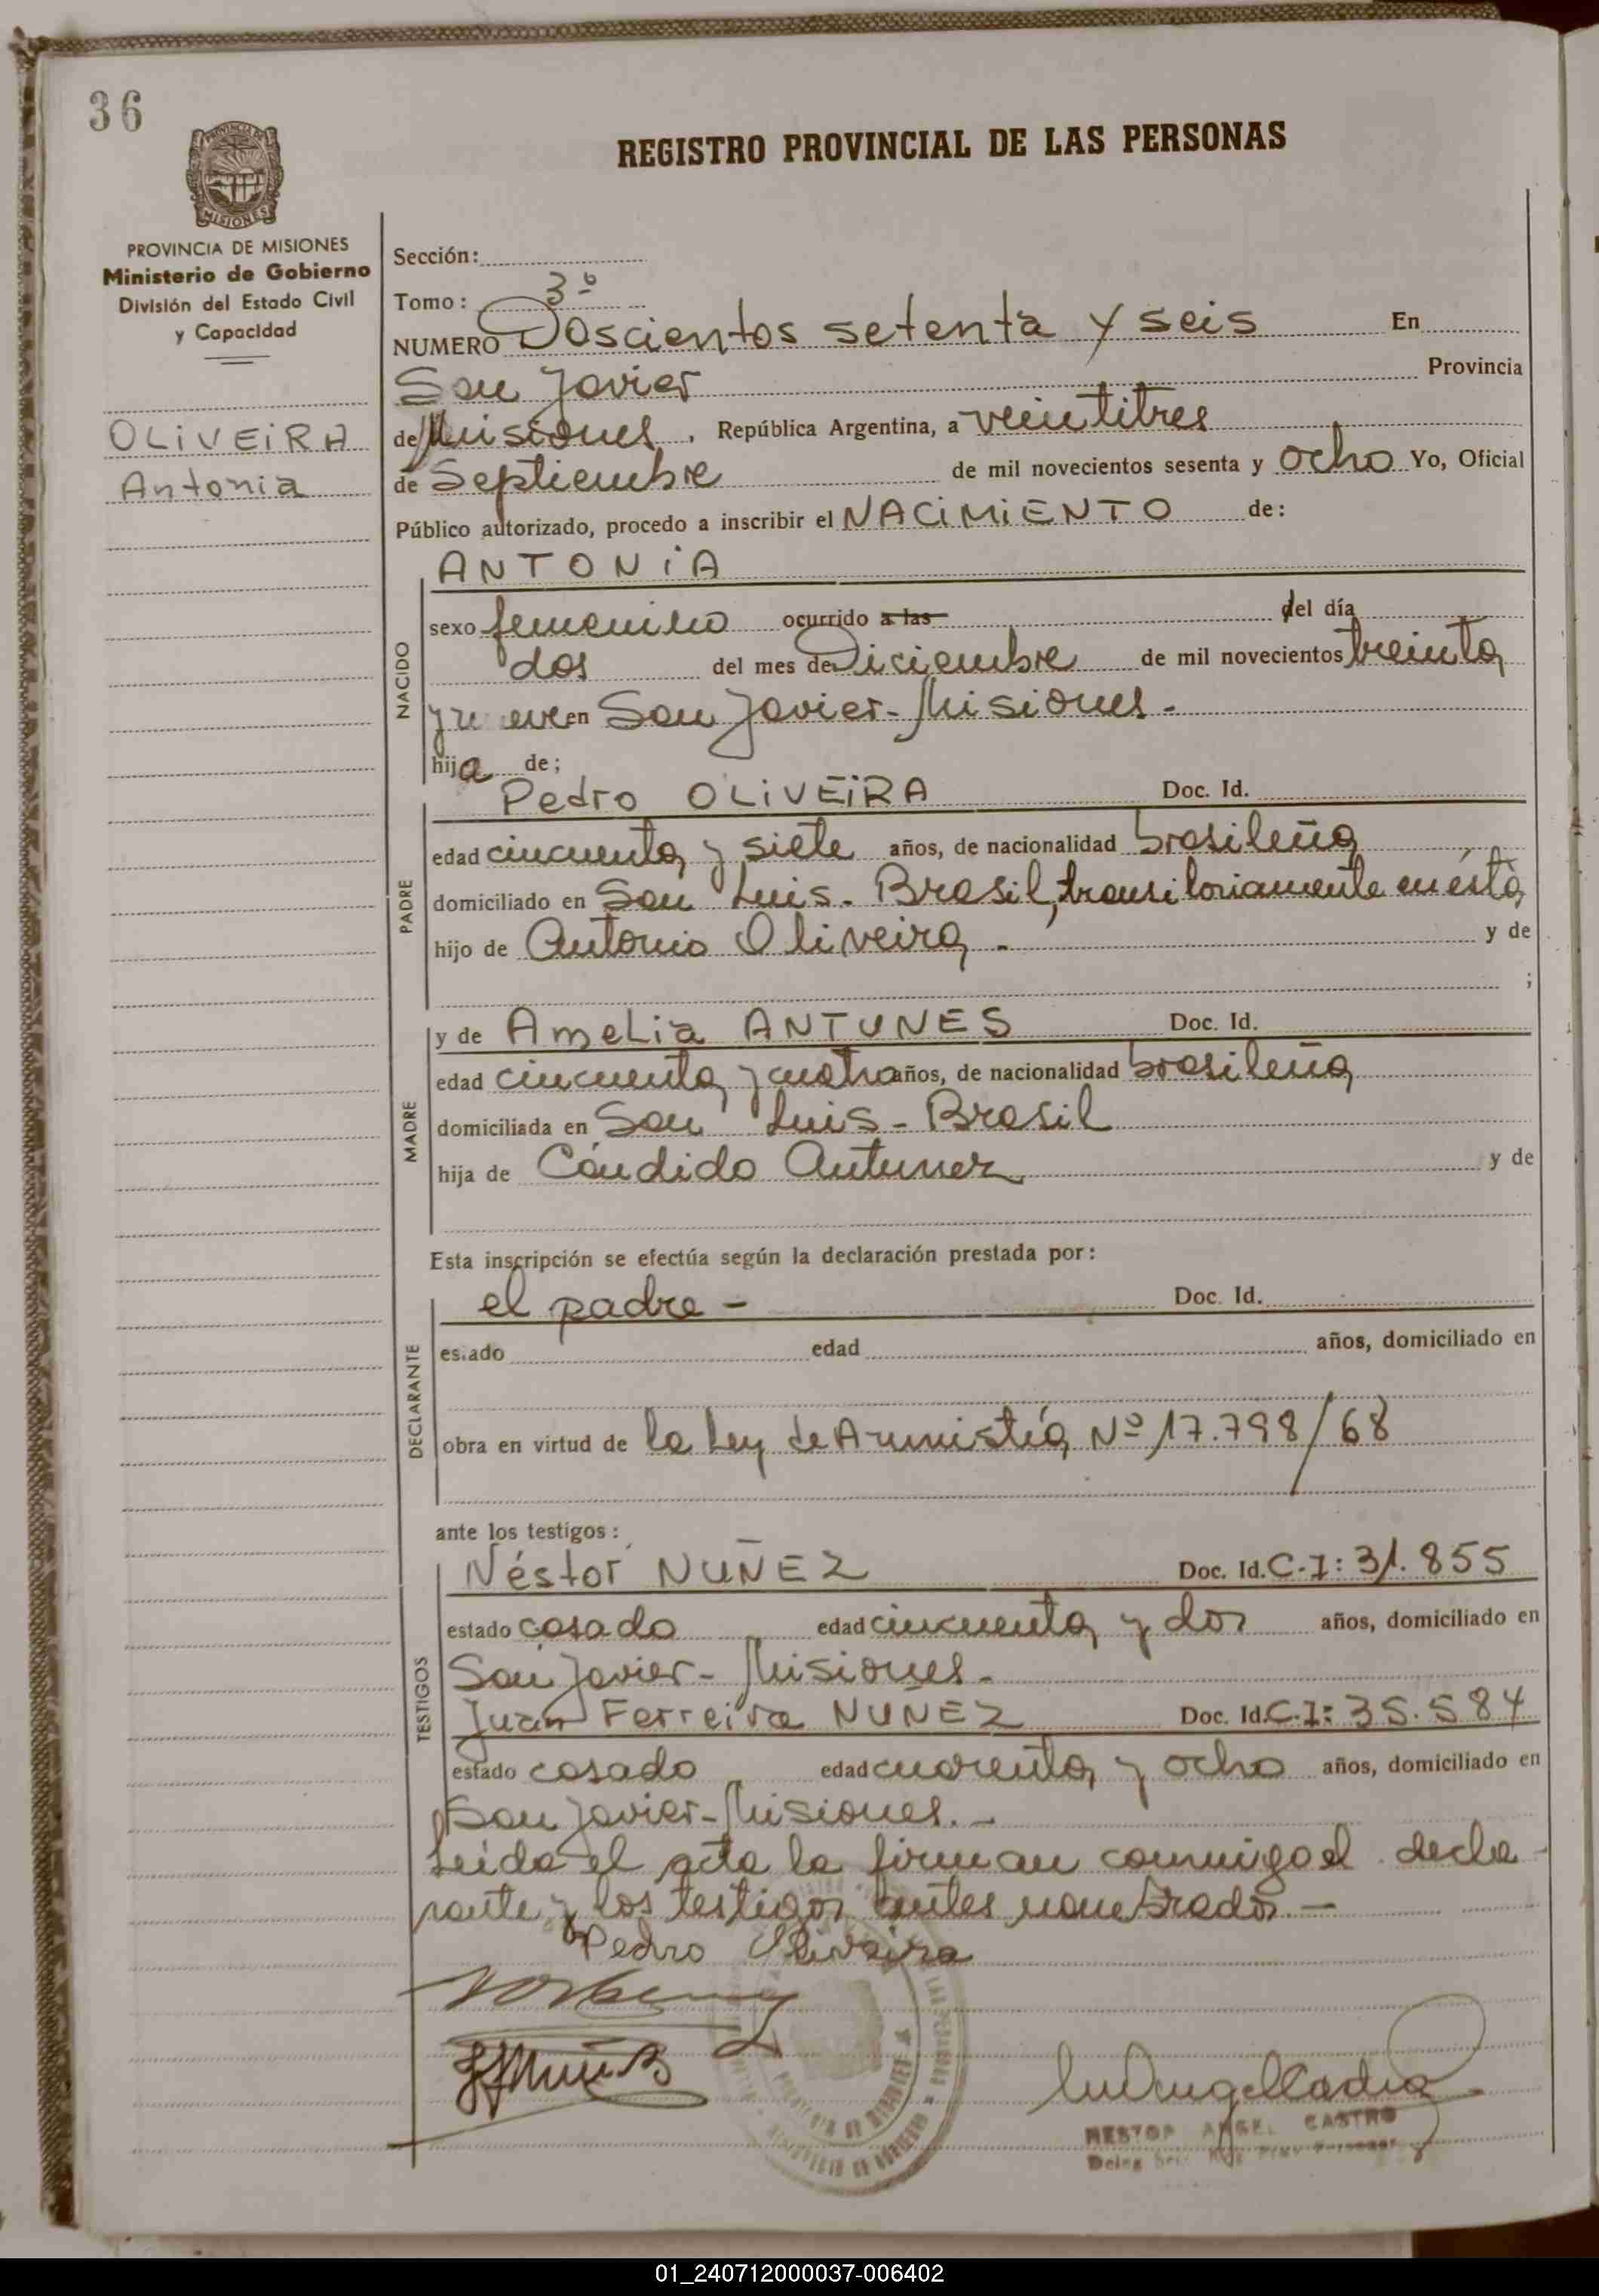 36
PROVINCIA DE MISIONES
Ministerio de Gobierno
División del Estado Civil
y Capacidad
OLIVEIRA
Antonia
REGISTRO PROVINCIAL DE LAS PERSONAS
Sección:
Tomo: 3º
NUMERO Doscientos setenta y seis En
San Javier Provincia
de Misiones, República Argentina, a veintitres
de Septiembre de mil novecientos sesenta y ocho Yo, Oficial
Público autorizado, procedo a inscribir el NACIMIENTO de:
NACIDO
ANTONIA
sexo femenino ocurrido a las del día
dos del mes de Diciembre de mil novecientos treinta
y nueve en San Javier - Misiones.
hija de;
PADRE
Pedro OLIVEIRA Doc. Id.
edad cincuenta y siete años, de nacionalidad brasileña
domiciliado en San Luis - Brasil, transitoriamente en ésta
hijo de Antonio Oliveira - y de
;
MADRE
y de Amelia ANTUNES Doc. Id.
edad cincuenta y cuatro años, de nacionalidad brasileña
domiciliada en San Luis - Brasil
hija de Cándido Antunez y de
Esta inscripción se efectúa según la declaración prestada por:
DECLARANTE
el padre - Doc. Id.
estado edad años, domiciliado en
obra en virtud de la Ley de Amnistía Nº 17.798/68
ante los testigos:
TESTIGOS
Néstor NUÑEZ Doc. Id. C.I: 31.855
estado casado edad cincuenta y dos años, domiciliado en
San Javier - Misiones.
Juan Ferreira NUÑEZ Doc. Id. C.I: 35.584
estado casado edad cuarenta y ocho años, domiciliado en
San Javier - Misiones. -
Leída el acta la firman conmigo el decla-
rante y los testigos antes nombrados. -
Pedro Oliveira
NESTOR ANGEL CASTRO
01_240712000037-006402